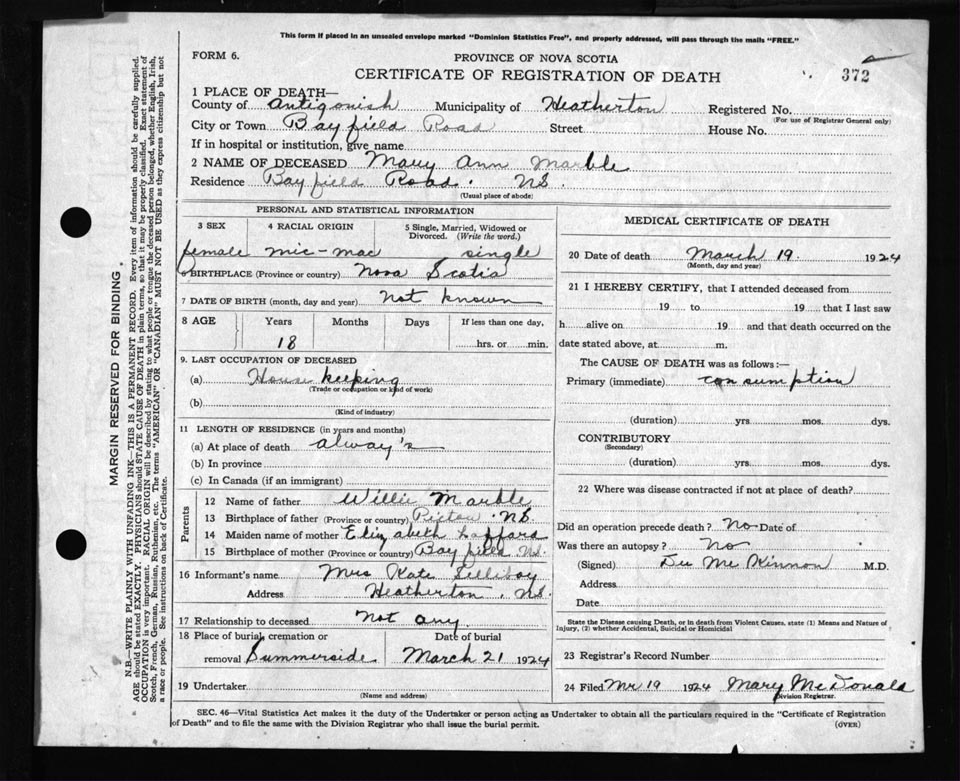 This form if placed in an unsealed envelope marked "Dominion Statistics Free", and properly addressed, will pass through the mails "FREE."
FORM 6.
PROVINCE OF NOVA SCOTIA
CERTIFICATE OF REGISTRATION OF DEATH
372
1 PLACE OF DEATH—
County of Antigonish Municipality of Heatherton Registered No.
(For use of Registrar General only)
City or Town Bayfield Road Street House No.
If in hospital or institution, give name
2 NAME OF DECEASED Mary Ann Marble
Residence Bayfield Road. NS
(Usual place of abode)
PERSONAL AND STATISTICAL INFORMATION
3 SEX 4 RACIAL ORIGIN 5 Single, Married, Widowed or Divorced. (Write the word.)
female mic-mac single
6 BIRTHPLACE (Province or country) Nova Scotia
7 DATE OF BIRTH (month, day and year) not known
8 AGE Years Months Days If less than one day,
18 hrs. or min.
9. LAST OCCUPATION OF DECEASED
(a) House keeping
(Trade or occupation or kind of work)
(b)
(Kind of industry)
11 LENGTH OF RESIDENCE (in years and months)
(a) At place of death alway's
(b) In province
(c) In Canada (if an immigrant)
Parents
12 Name of father Willie Marble
13 Birthplace of father (Province or country) Pictou NS.
14 Maiden name of mother Elizabeth
15 Birthplace of mother (Province or country) Bayfield NS.
16 Informant's name Mrs Kate
Address Heatherton, NS.
17 Relationship to deceased Not any
18 Place of burial, cremation or Date of burial
removal Summerside March 21 1924
19 Undertaker
(Name and address)
MEDICAL CERTIFICATE OF DEATH
20 Date of death March 19. 1924
(Month, day and year)
21 I HEREBY CERTIFY, that I attended deceased from
19 to 19 that I last saw
h alive on 19 and that death occurred on the
date stated above, at m.
The CAUSE OF DEATH was as follows:—
Primary (immediate) consumption
(duration) yrs. mos. dys.
CONTRIBUTORY
(Secondary)
(duration) yrs. mos. dys.
22 Where was disease contracted if not at place of death?
Did an operation precede death? No Date of
Was there an autopsy? No
(Signed) Mc Kinnon M.D.
Address
Date
State the Disease causing Death, or in death from Violent Causes, state (1) Means and Nature of
Injury, (2) whether Accidental, Suicidal or Homicidal
23 Registrar's Record Number
24 Filed Mr 19 1924 Mary McDonald
Division Registrar.
SEC. 46—Vital Statistics Act makes it the duty of the Undertaker or person acting as Undertaker to obtain all the particulars required in the "Certificate of Registration
of Death" and to file the same with the Division Registrar who shall issue the burial permit.
(OVER)
MARGIN RESERVED FOR BINDING
N.B.—WRITE PLAINLY WITH UNFADING INK—THIS IS A PERMANENT RECORD. Every item of information should be carefully supplied.
AGE should be stated EXACTLY. PHYSICIANS should STATE CAUSE OF DEATH in plain terms, so that it may be properly classified. Exact statement of
OCCUPATION is very important. RACIAL ORIGIN will be described by stating to what people or tongue the deceased person belonged, whether English, Irish,
Scotch, French, German, Russian, Ruthenian, etc. The terms "AMERICAN" OR "CANADIAN" MUST NOT BE USED as they express citizenship but not
a race or people. See instructions on back of Certificate.